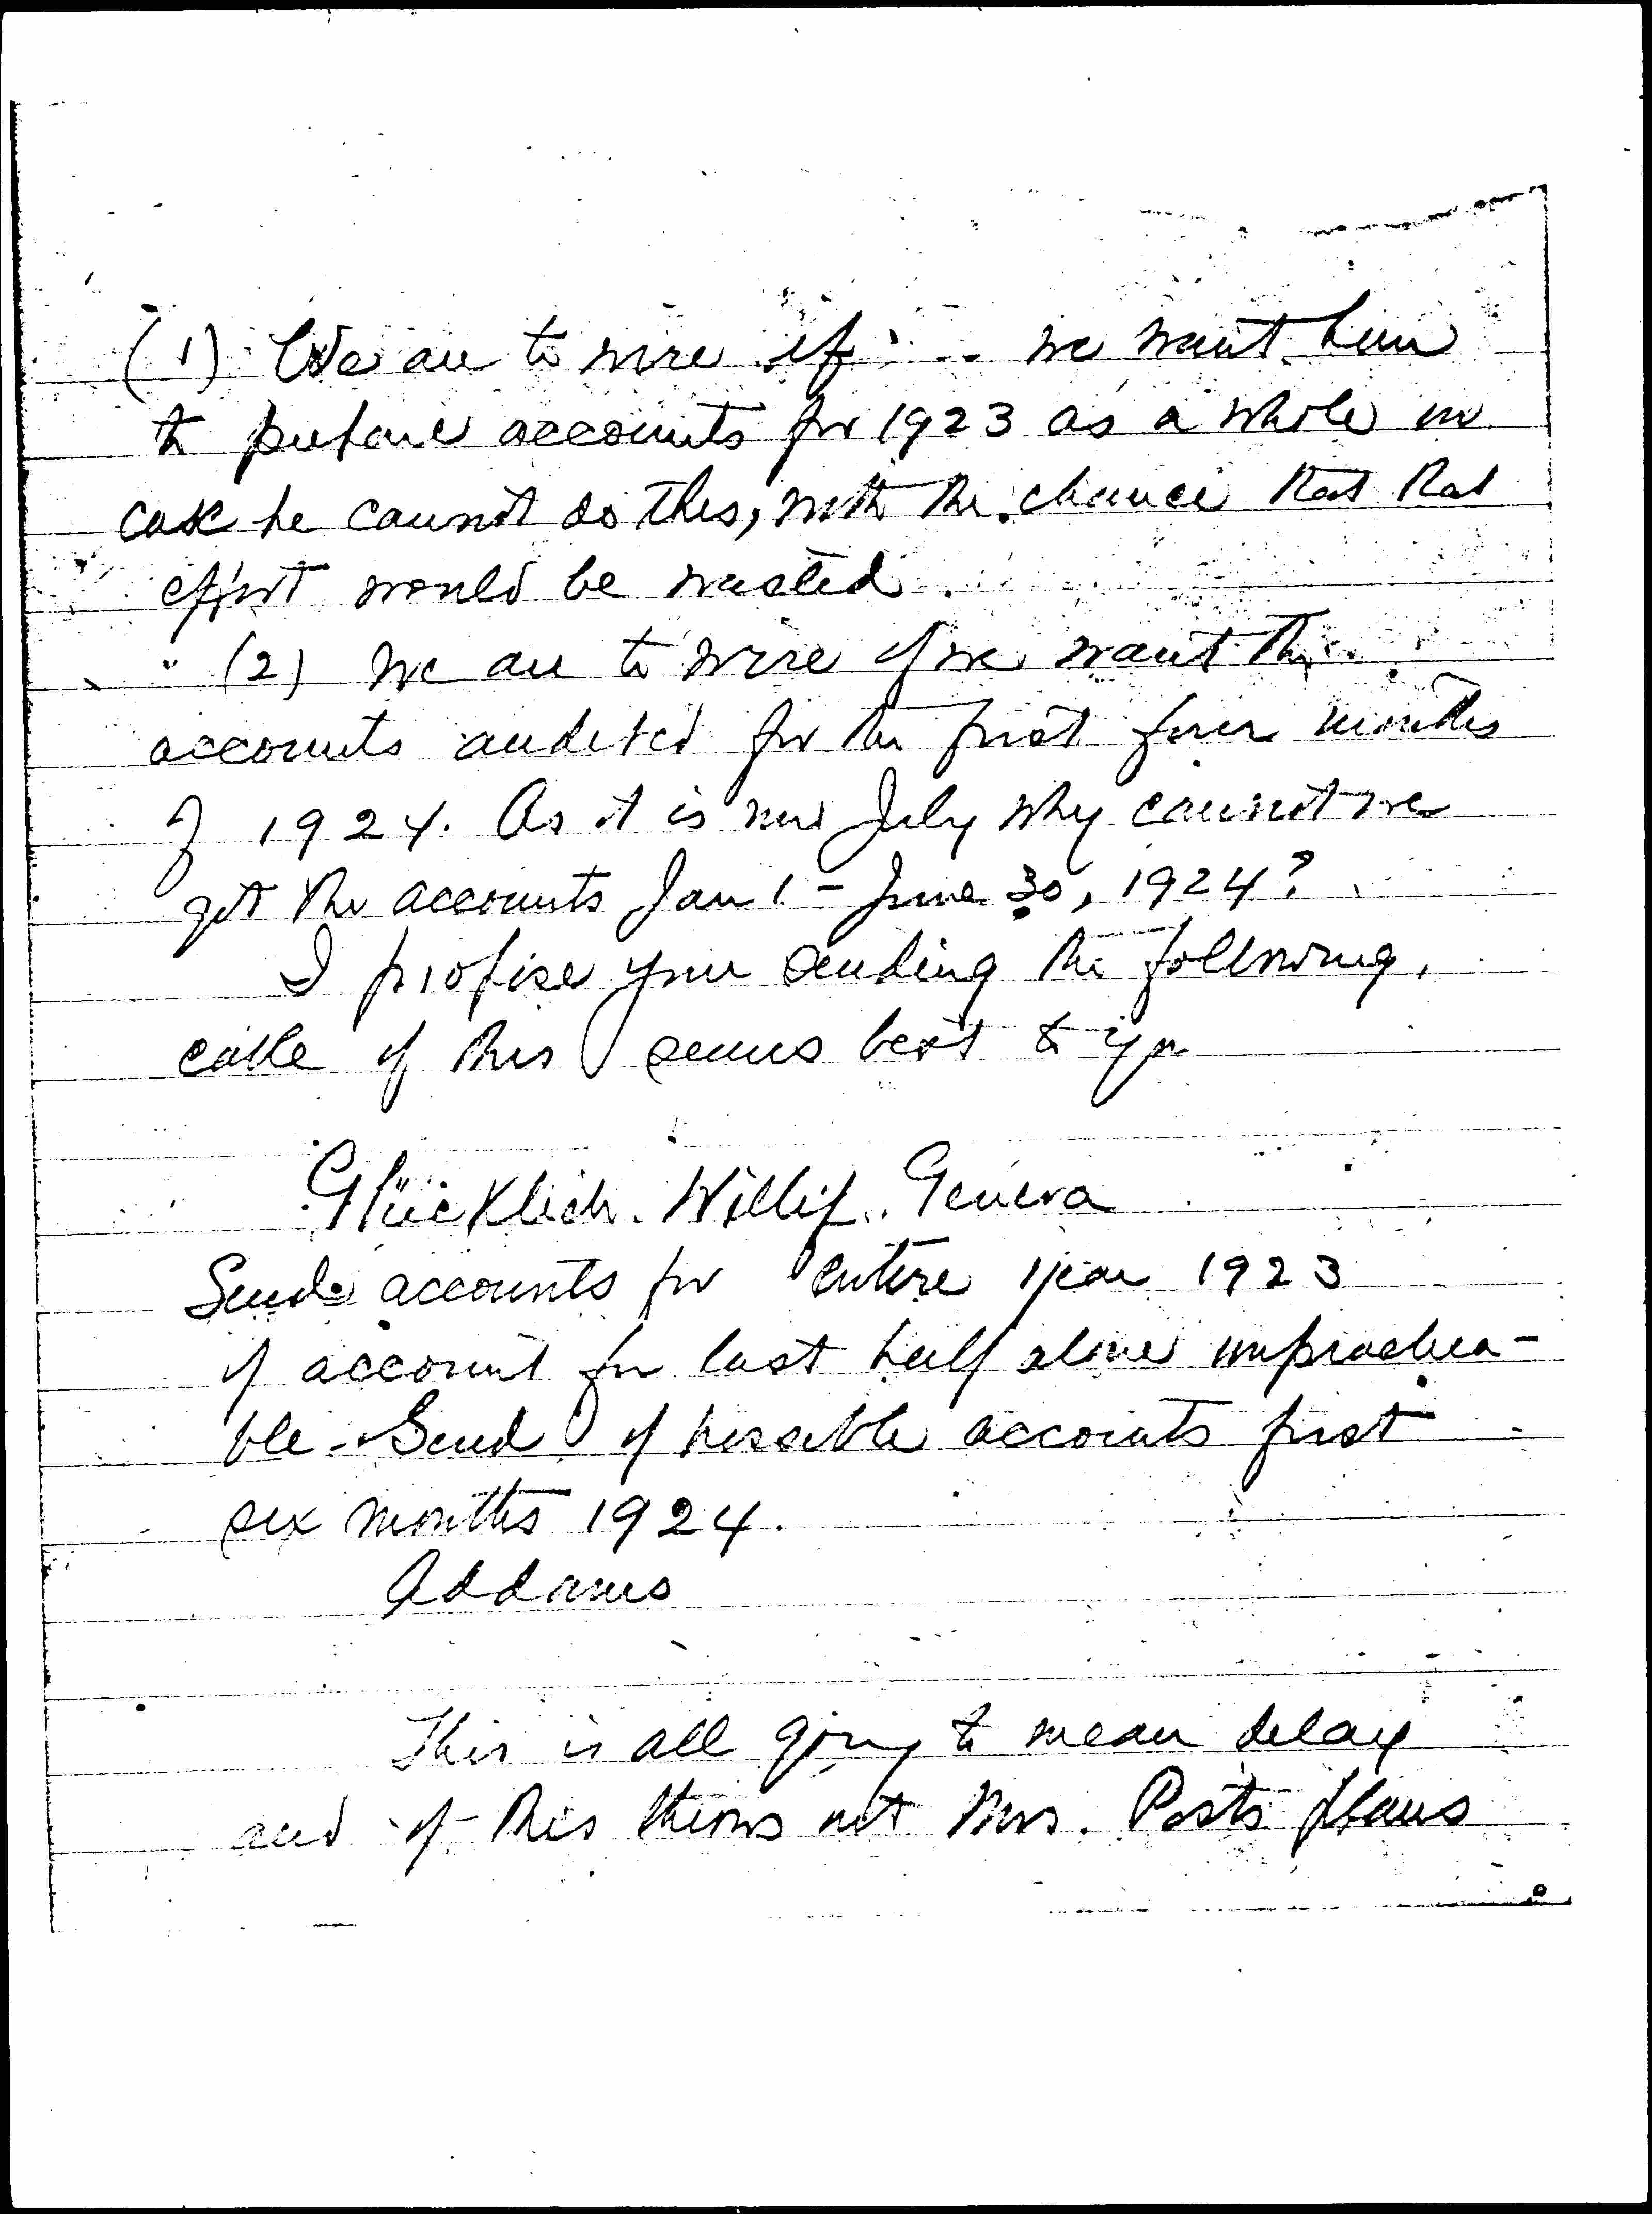 (1) We are to wire if we want him
to prepare accounts for 1923 as a whole in
case he cannot do this, with the chance that that
effort would be wasted.
(2) We are to wire if we want the
accounts audited for the first four months
of 1924. As it is now July why cannot we
get the accounts Jan 1 - June 30, 1924?
I propose your sending the following
cable if this seems best to you
Glücklich. Willif. Geneva
Send accounts for entire year 1923
if account for last half alone impractica-
ble. Send if possible accounts first
six months 1924.
Addams
This is all going to mean delay
and if this throws out Mrs. Posts plans